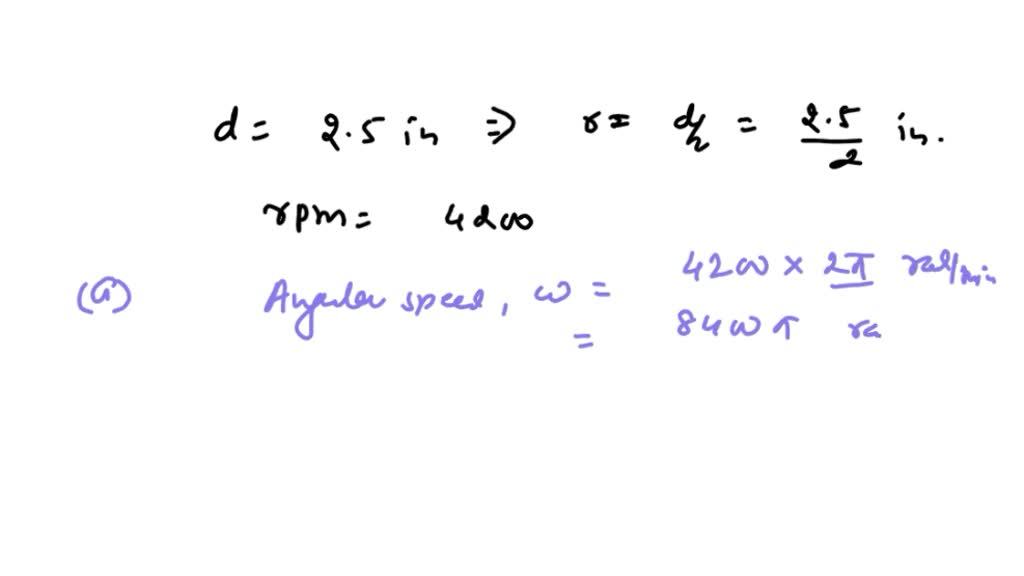 d = 2.5 in ⇒ r = d/2 = 2.5/2 in.
rpm = 4200
(a) Angular speed, ω = 4200 × 2π rad/min
= 8400 π ra